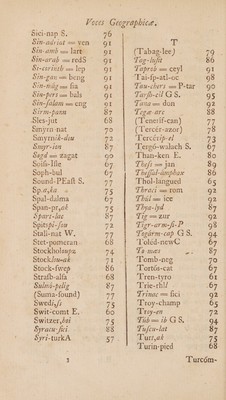 Voces Geographicæ.
Sici-nap S. 76
Sin-adriat = ven 91
Sin-amb = lart 91
Sin-arab = redS 91
Si-ceriseb = lep 91
Sin-gan = beng 91
Sin-nâg = sia 91
Sin-pers = bals 91
Sin-salam = eng 91
Sirm-pann 87
Sles-jut 68
Smyrn-nat 70
Smyrnök-dau 72
Smyr-ion 87
Sogd = zagat 90
Soils-lise 67
Soph-bul 67
Sound-PEast S. 77
Sp.n,ba 75
Spal-dalma 67
Span-pr,ol 75
Spart-lac 87
Spitspî-fou 72
Stall-nat W. 77
Stet-pomeran 68
Stockholoupu 74
Stocklnu-ak 71
Stock-swep 86
Strasb-alsa 68
Sulmô-pelig 87
(Suma-found) 77
Swedi,fi 75
Swit-comt E. 60
Switzer,boi 75
Syracu-sici 88
Syri-turkA 57
T
(Tabag-lee) 79
Tag-lusit 86
Taprob = ceyl 91
Tai-sp-atl-oc 98
Tau-chers = P-tar 90
Tarsh-cil G S. 95
Tana = don 92
Tegæ-arc 88
(Tenerif-can) 77
(Tercér-azor) 78
Tercérip-el 73
Tergô-walach S. 67
Than-ken E. 80
Thest = jan 89
Thessal-amphax 86
Thol-langued 65
Thraci = rom 92
Thul = ice 92
Thya-lyd 87
Tig = zur 92
Tigr-arm-fi-P 98
Togárm-cap G S. 94
Toléd-newC 67
To mœs 87
Tomb-neg 70
Tortôs-cat 67
Tren-tyro 61
Trie-rhlĭ 67
Trinac = sici 92
Troy-champ 65
Troy-en 72
Tub = ib G S. 94
Tuscu-lat 87
Turt,ok 75
Turin-pied 68
1
Turcóm-